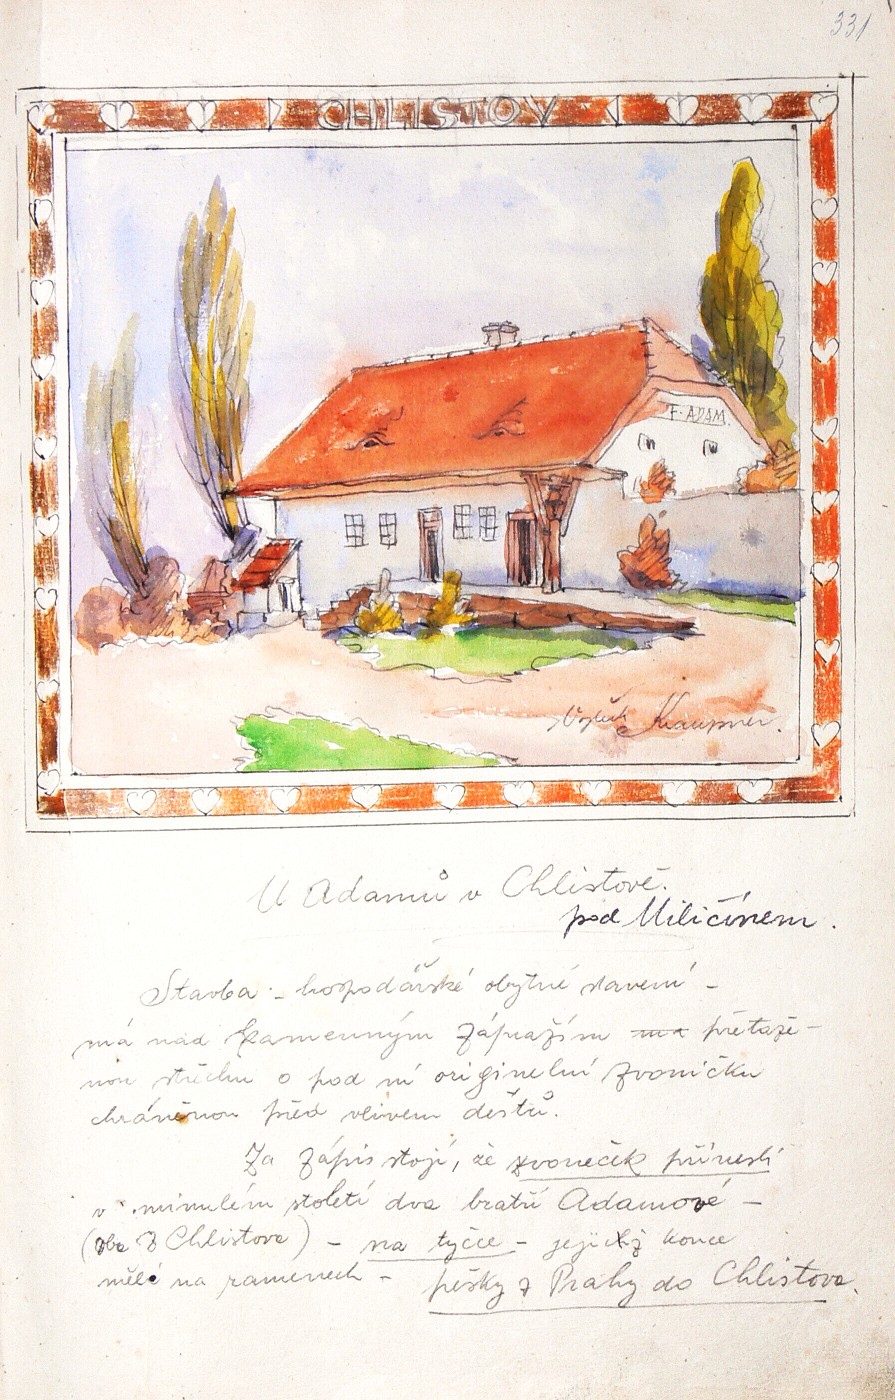 331
CHLISTOV
F. ADAM
Vojtěch Kaupner.
U Adamů v Chlistově.
pod Miličínem.
Stavba - hospodářské obytné stavení -
má nad kamenným zápražím přetaže-
nou střechu a pod ní originelní zvoničku
chráněnou před vlivem deštů.
Za zápis stojí, že zvoneček přinesli
v minulém století dva bratři Adamové -
(oba z Chlistova) - na tyčce - jejichž konce
měli na ramenech - pěšky z Prahy do Chlistova.